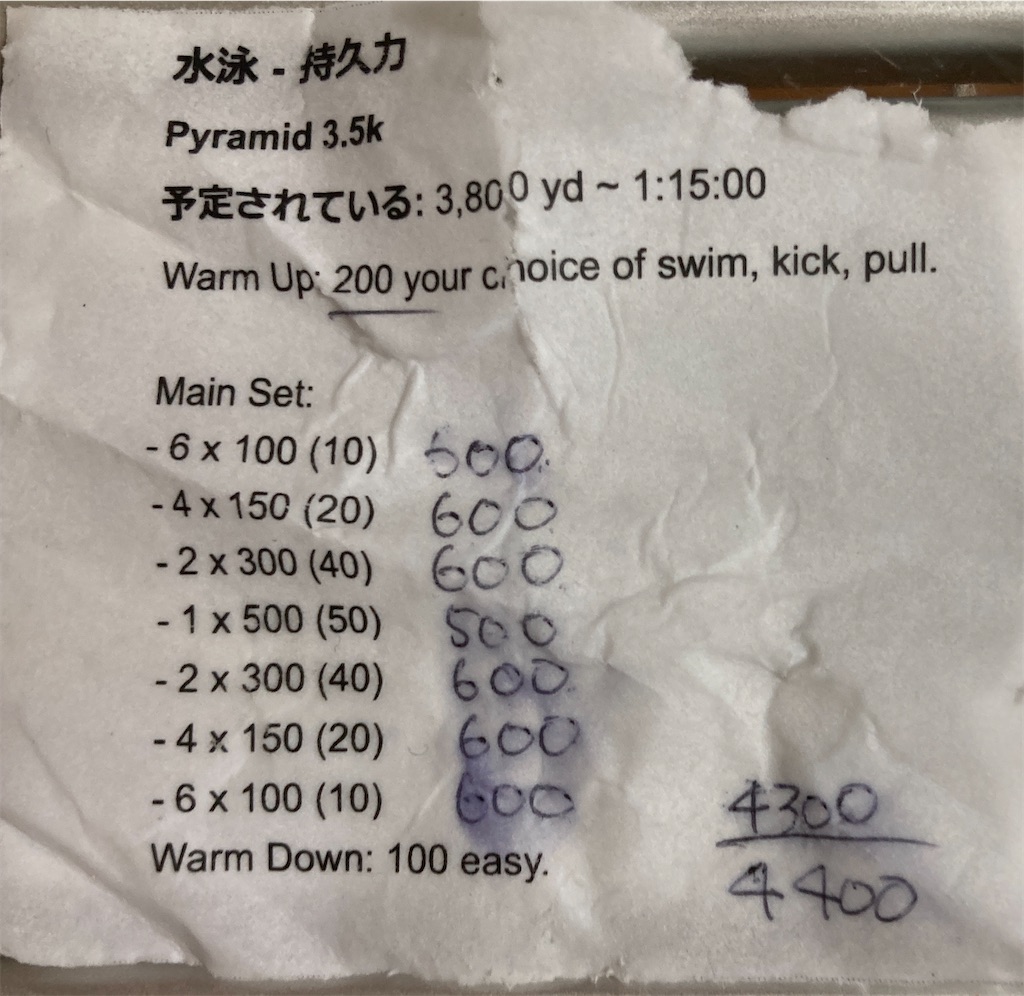 水泳 - 持久力
Pyramid 3.5k
予定されている: 3,800 yd ~ 1:15:00
Warm Up: 200 your choice of swim, kick, pull.
Main Set:
- 6 x 100 (10) 600
- 4 x 150 (20) 600
- 2 x 300 (40) 600
- 1 x 500 (50) 500
- 2 x 300 (40) 600
- 4 x 150 (20) 600
- 6 x 100 (10) 600
4300
Warm Down: 100 easy.
4400